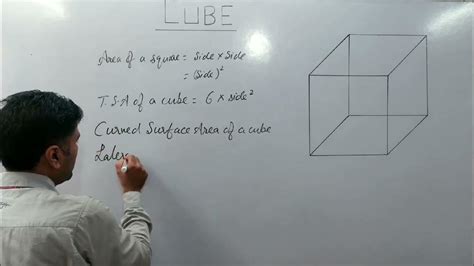 CUBE
Area of a square = Side × Side
= (Side)²
T.S.A of a cube = 6 × side²
Curned Surface Area of a cube
Later